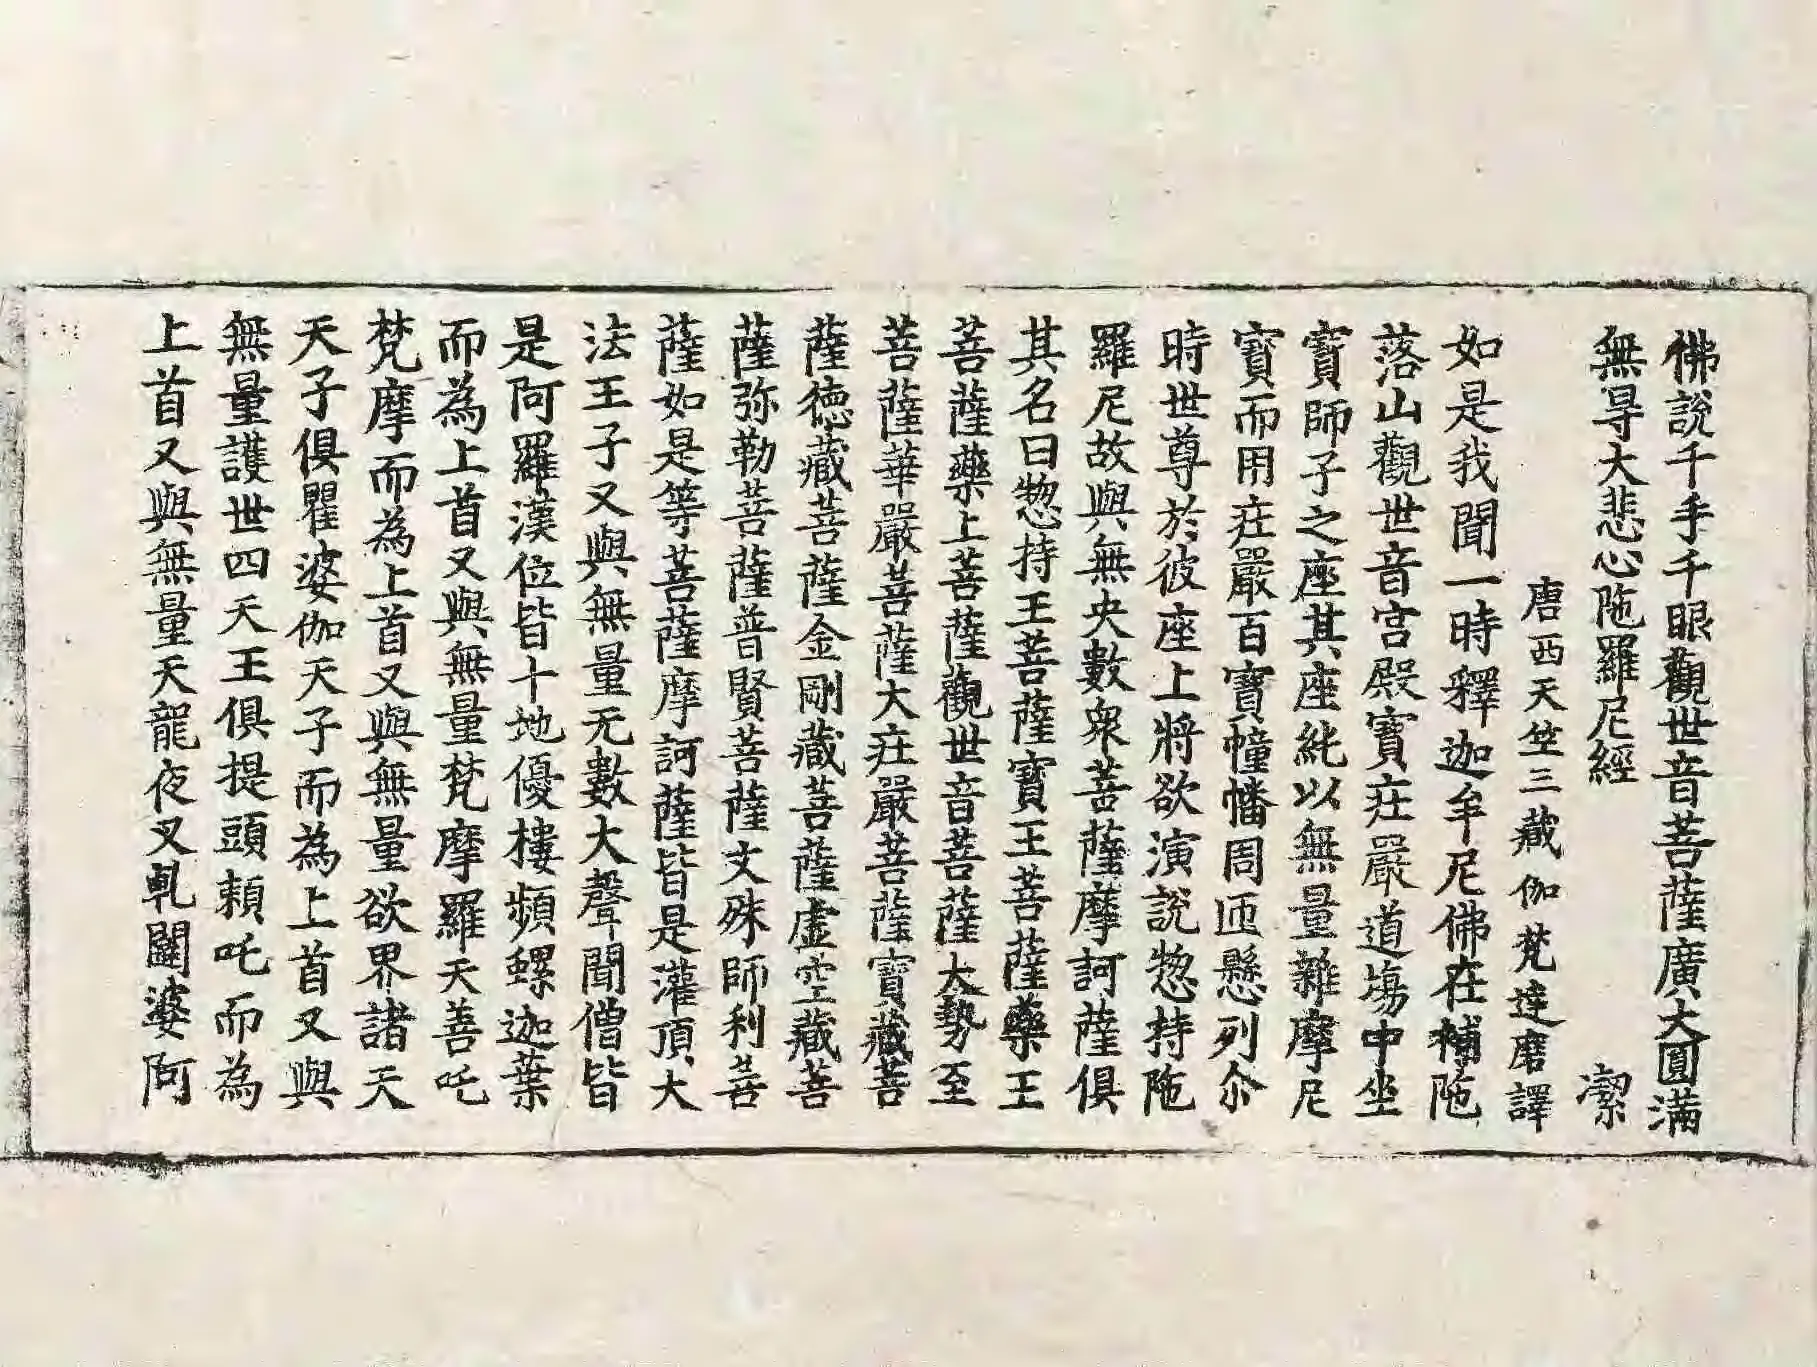 佛說千手千眼觀世音菩薩廣大圓滿
無㝵大悲心陁羅尼經　潔
唐西天竺三藏伽梵達磨譯
如是我聞一時釋迦牟尼佛在補陁
落山觀世音宮殿寶莊嚴道塲中坐
寶師子之座其座純以無量雜摩尼
寶而用莊嚴百寶幢幡周匝懸列尒
時世尊於彼座上將欲演說惣持陁
羅尼故與無央數衆菩薩摩訶薩俱
其名曰惣持王菩薩寶王菩薩藥王
菩薩藥上菩薩觀世音菩薩大勢至
菩薩華嚴菩薩大莊嚴菩薩寶藏菩
薩德藏菩薩金剛藏菩薩虛空藏菩
薩弥勒菩薩普賢菩薩文殊師利菩
薩如是等菩薩摩訶薩皆是灌頂大
法王子又與無量无數大聲聞僧皆
是阿羅漢位皆十地優樓頻螺迦葉
而為上首又與無量梵摩羅天善吒
梵摩而為上首又與無量欲界諸天
天子俱瞿婆伽天子而為上首又與
無量護世四天王俱提頭頼吒而為
上首又與無量天龍夜叉乹闥婆阿